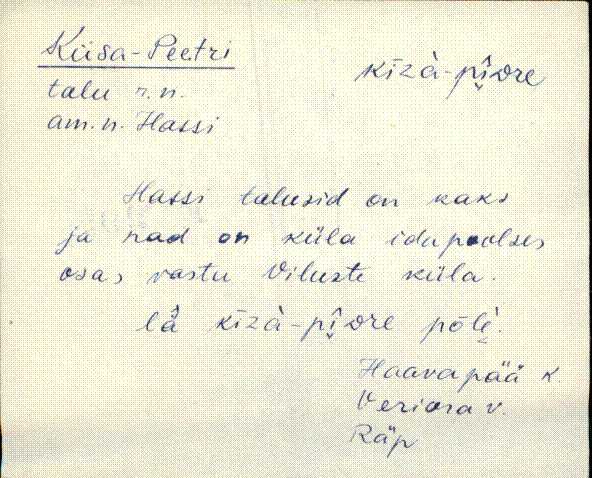 Kiisa-Peetri
kīzà-pî̬dre
talu r.n.
am.n. Hassi
Hassi talusid on kaks
ja nad on küla idapoolses
osas vastu Viluste küla.
lǟ kīzà-pî̬dre põlè.
Haavapää k
Veriora v.
Räp